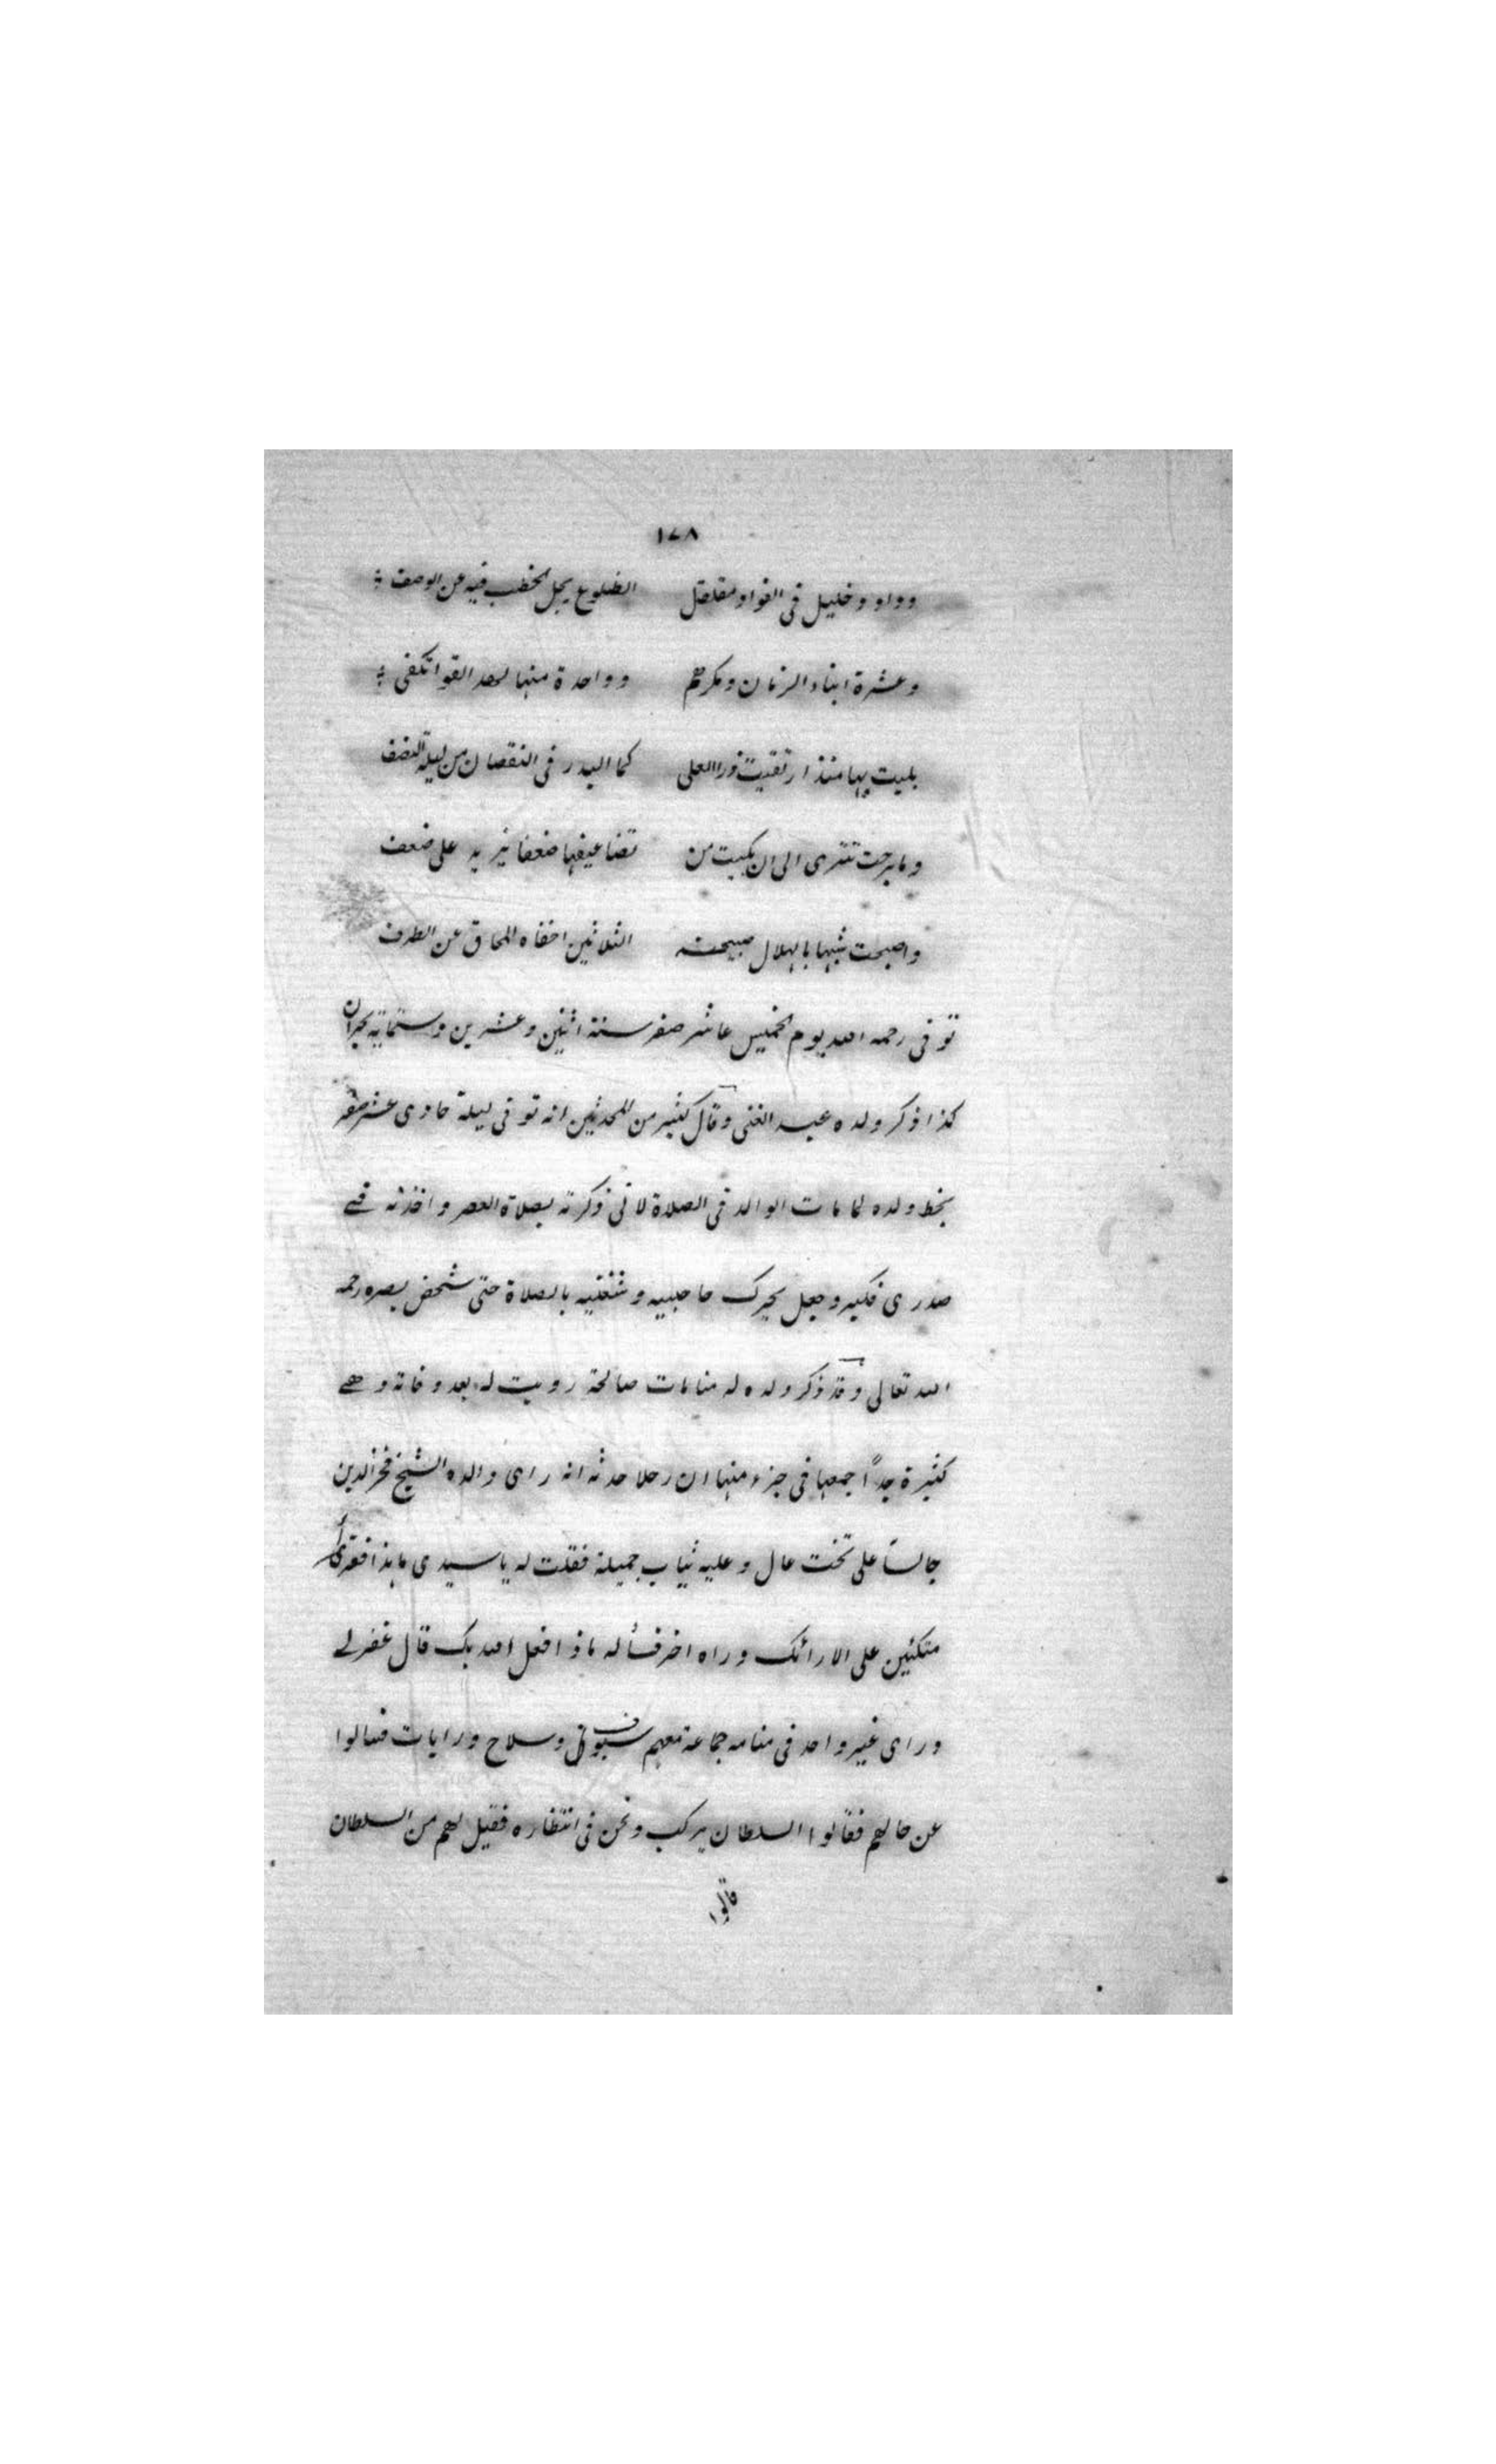 ١٧٨
وداو دخليل فى الفواد مقلقل الضلوع يجل الخطب فيه عن الوصف
وعشرة ابناء الزمان ومكرهم وواحدة منها لهد القوا تكفى
بليت بها منذ ارتقيت ذرا العلى كما البدر فى النقصان من ليلة النصف
وما برحت تترى الى ان بكيت من تضاعيفها ضعفا يزيد على ضعف
واصبحت شبها بالهلال صبيحة الثلاثين اخفاه المحاق عن الطرف
توفى رحمه الله يوم الخميس عاشر صفر سنة اثنين وعشرين وستماية بحران
كذا ذكر ولده عبد الغنى وقال كثير من المحدثين انه توفى ليلة حادى عشر صفر
بخط ولده لما مات الوالد فى الصلاة لانى ذكرته بصلاة العصر واخذته فى
صدرى فكبر وجعل يحرك حاجبيه وشفتيه بالصلاة حتى شخص بصره رحمه
الله تعالى وقد ذكر ولده له منامات صالحة رويت له بعد وفاته وهى
كثيرة جداً جمعها فى جزء منها ان رجلا حدثه انه راى والده الشيخ فخر الدين
جالسا على تخت عال وعليه ثياب جميلة فقلت له يا سيدى ما هذا فقرأ
متكئين على الارائك وراه اخر فسأله ماذا فعل الله بك قال غفر لى
وراى غير واحد فى منامه جماعة معهم سيوف وسلاح ورايات فسالوا
عن حالهم فقالوا السلطان يركب ونحن فى انتظاره فقيل لهم من السلطان
قالوا